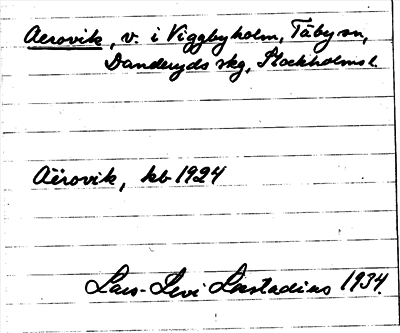 Aerovik, v. i Viggbyholm, Täby sn,
Danderyds skg, Stockholms l.
Aërovik, kb 1924
Lars-Levi Læstadius 1934.